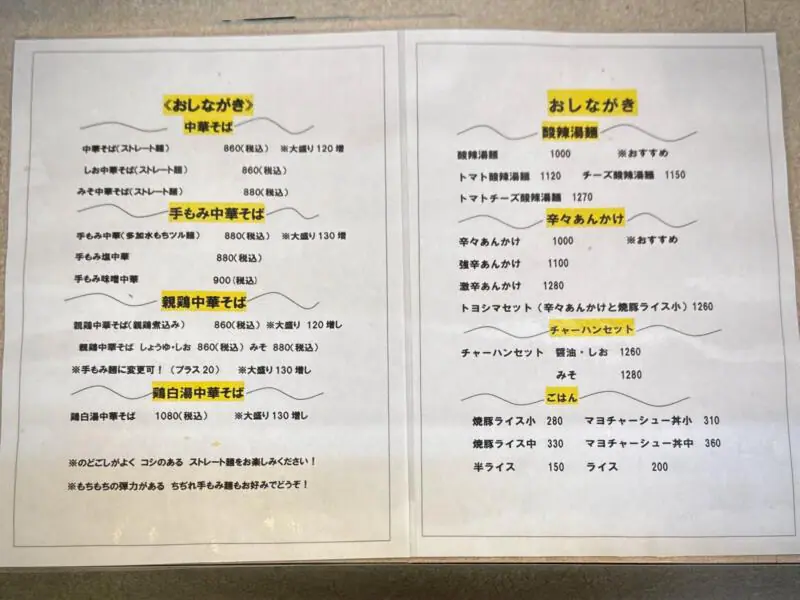 《おしながき》
中華そば
中華そば(ストレート麺) 860(税込) ※大盛り120増
しお中華そば(ストレート麺) 860(税込)
みそ中華そば(ストレート麺) 880(税込)
手もみ中華そば
手もみ中華(多加水もちツル麺) 880(税込) ※大盛り130増
手もみ塩中華 880(税込)
手もみ味噌中華 900(税込)
親鶏中華そば
親鶏中華そば(親鶏煮込み) 860(税込) ※大盛り 120増し
親鶏中華そば しょうゆ・しお 860(税込) みそ 880(税込)
※手もみ麺に変更可!(プラス20) ※大盛り130増し
鶏白湯中華そば
鶏白湯中華そば 1080(税込) ※大盛り130増し
※のどごしがよく コシのある ストレート麺をお楽しみください!
※もちもちの弾力がある ちぢれ手もみ麺もお好みでどうぞ!
おしながき
酸辣湯麺
酸辣湯麺 1000 ※おすすめ
トマト酸辣湯麺 1120 チーズ酸辣湯麺 1150
トマトチーズ酸辣湯麺 1270
辛々あんかけ
辛々あんかけ 1000 ※おすすめ
強辛あんかけ 1100
激辛あんかけ 1280
トヨシマセット(辛々あんかけと焼豚ライス小)1260
チャーハンセット
チャーハンセット 醤油・しお 1260
みそ 1280
ごはん
焼豚ライス小 280 マヨチャーシュー丼小 310
焼豚ライス中 330 マヨチャーシュー丼中 360
半ライス 150 ライス 200